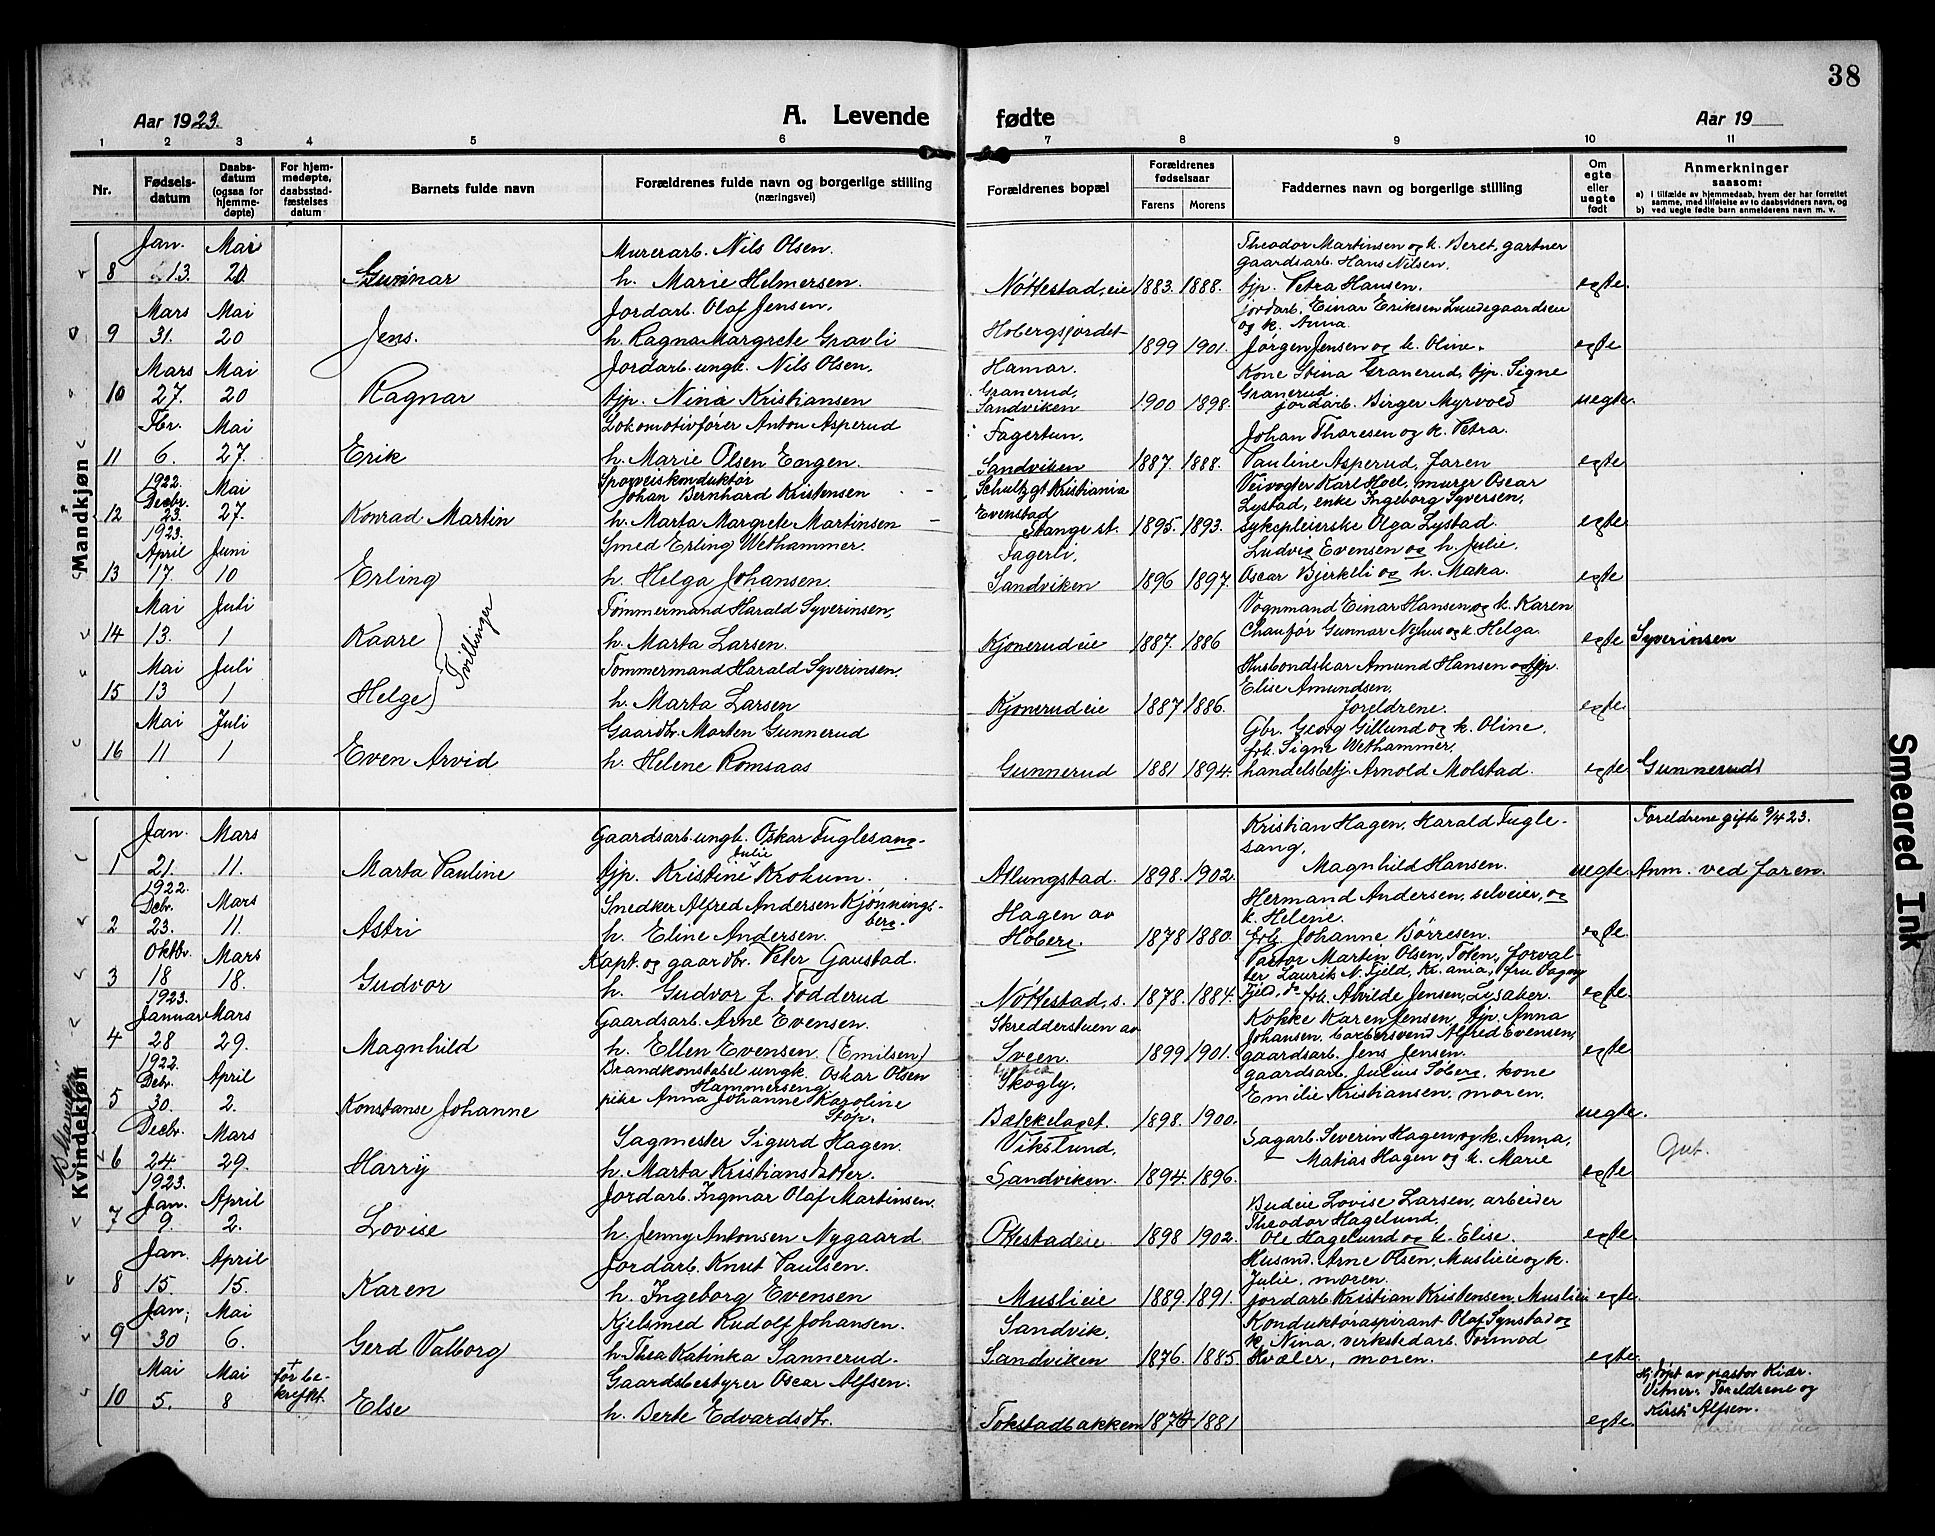 38
Aar 1923.
A. Levende
fødte
Aar 19
1 2 3 4 5 6 7 8 9 10 11
Nr.
Fødsels-
datum
Daabs-
datum
(ogsaa for
hjemme-
døpte)
For hjem-
medøpte,
daabsstad-
fæstelses
datum
Barnets fulde navn
Forældrenes fulde navn og borgerlige stilling
(næringsvei)
Forældrenes bopæl
Forældrenes
fødselsaar
Farens Morens
Faddernes navn og borgerlige stilling
Om
egte
eller
uegte
født
Anmerkninger
saasom:
a) i tilfælde av hjemmedaab, hvem der har forrettet
samme, med tilføielse av to daabsvidners navn, og
b) ved uegte fødte barn anmelderens navn m. v.
Mandkjøn
Jan. Mai Murerarb. Nils Olsen. Theodor Martinsen og k. Beret, gartner
gaardsarb. Hans Nilsen.
8 13. 20 Gunnar h. Marie Helmersen. Nøttestad, eie 1883. 1888. pjp. Petra Hansen. egte.
Mars Mai Jordarb. Olaf Jensen. jordarb. Einar Eriksen Lundegaardseie
og k. Anna.
9 31. 20 Jens. h. Ragna Margrete Gravli Hobergsjordet 1899 1901. Jørgen Jensen og k. Oline. egte
Mars Mai Jordarb. ungk. Nils Olsen. Hamar. Kone Stina Granerud, pjp. Signe
Granerud, Granerud.
10 27. 20 Ragnar pjp. Nina Kristiansen Sandviken 1900 1898. jordarb. Birger Myrvold uegte.
Fbr. Mai Lokomotivfører Anton Asperud Fagertun, Johan Tharesen og k. Petra.
11 6. 27. Erik h. Marie Olsen Engen. Sandviken 1887. 1888. Pauline Asperud, faren egte
1922.
Decbr. Mai Sporveiskonduktør
Johan Bernhard Kristensen Schultzgt Kristiania Veivogter Karl Hoel, murer Oscar
Evenstad Lystad, enke Ingeborg Syversen,
12 23. 27. Konrad Martin h. Marta Margrete Martinsen Stange st. 1895. 1893. sykepleierske Olga Lystad. egte.
1923.
April Juni Smed Erling Wethammer. Fagerli, Ludvig Evensen og h. Julie.
13 17. 10 Erling h. Helga Johansen. Sandviken 1896 1897. Oscar Bjerkeli og h. Maka. egte
Mai Juli Tømmermand Harald Syverinsen, Vognmand Einar Hansen og k. Karen
14 13. 1 Kaare h. Marta Larsen. Kjonerudeie 1887. 1886 Chaufør Gunnar Nyhus og k. Helga. egte Syverinsen
Tvillinger
Mai Juli Tømmermand Harald Syverinsen. Husbondskar Amund Hansen og pjp.
Elise Amundsen,
15 13 1 Helge h. Marta Larsen Kjonerudeie 1887 1886. foreldrene. egte.
Mai Juli Gaardbr. Morten Gunnerud Gbr. Georg Gillund og k. Oline.
frk. Signe Wethammer,
16 11 1 Even Arvid h. Helene Romsaas Gunnerud 1881 1894. handelsbetj. Arnold Molstad. egte Gunnerud
Kvindekjøn
Jan. Mars Gaardsarb. ungk. Oskar Fuglesang. Kristian Hagen, Harald Fugle- Foreldrene gifte 9/4 23.
sang,
Julie
1 21. 11. Marta Pauline pjp. Kristine Krokum. Atlungstad. 1898. 1902. Magnhild Hansen. uegte. Anm. ved faren.
1922.
Dcbr. Mars Snedker Alfred Andersen Kjønnings- Hagen av Hermand Andersen, selveier, og
berg. k. Helene.
2 23. 11. Astri h. Eline Andersen. Hoberg. 1878 1880. frk. Johanne Børresen. egte.
Oktbr. Mars Kapt. og gaardbr. Peter Gaustad. Pastor Martin Olsen, Toten, forval-
ter Laurits N. Fjeld, Kr.ania, fru Dagny
3 18 18. Gudvor h. Gudvor f. Todderud Nøttestad, s. 1878. 1884. Fjeld, do frk. Alvilde Jensen, Lysaker. egte.
1923.
Januar Mars Gaardsarb. Arne Evensen. Skredderstuen av Kokke Karen Jensen, pjp. Anna
Johansen, barbersvend Alfred Evensen,
4 28 29. Magnhild h. Ellen Evensen (Emilsen) Sveen. 1899 1901. gaardsarb. Jens Jensen. egte
1922.
Dcbr. April Brandkonstabel ungk. Oskar Olsen Skogly, gaardsarb. Julius Soberg, kone
Hammerseng
5 30. 2. Konstanse Johanne pike Anna Johanne Karoline Bækkelaget. 1898. 1900. Emilie Kristiansen, moren. uegte.
Støp.
Decbr. Mars Sagmester Sigurd Hagen. Vikslund, Sagarb. Severin Hagen og k. Anna,
6 24. 29. Harry h. Marta Kristians dtter. Sandviken. 1894. 1896. Matias Hagen og k. Marie egte Gut.
1923.
Jan. April Jordarb. Ingmar Olaf Martinsen. Budeie Lovise Larsen, arbeider
Theodor Hagelund,
7 9. 2. Lovise h. Jenny Antonsen Nygaard. Ottestadeie. 1898 1902. Ole Hagelund og k. Elise. egte.
Jan. April Jordarb. Knut Paulsen. Husmd. Arne Olsen, Muslieie og k.
Julie, moren.
8 15. 15. Karen h. Ingeborg Evensen Muslieie 1889. 1891. jordarb. Kristian Kristensen, Muslieie egte.
Jan. Mai Kjelsmed Rudolf Johansen. Sandvik, Konduktøraspirant Olaf Synstad og
k. Nina, verkstedarb. Tormod
9 30 6. Gerd Valborg h. Thea Katinka Sannerud. Sandviken 1876. 1885 Kvæler, moren. egte.
Mai Mai + før be-
kreftet. Gaardsbestyrer Oscar Alfsen. Hj.døpt av pastor Kiær.
Vitner: Foreldrene og
10 5. 8 Else h. Berte Edvardsdtr. Tokstadbakken 1874 1881 egte. Kirsti Alfsen.
Smeared Ink